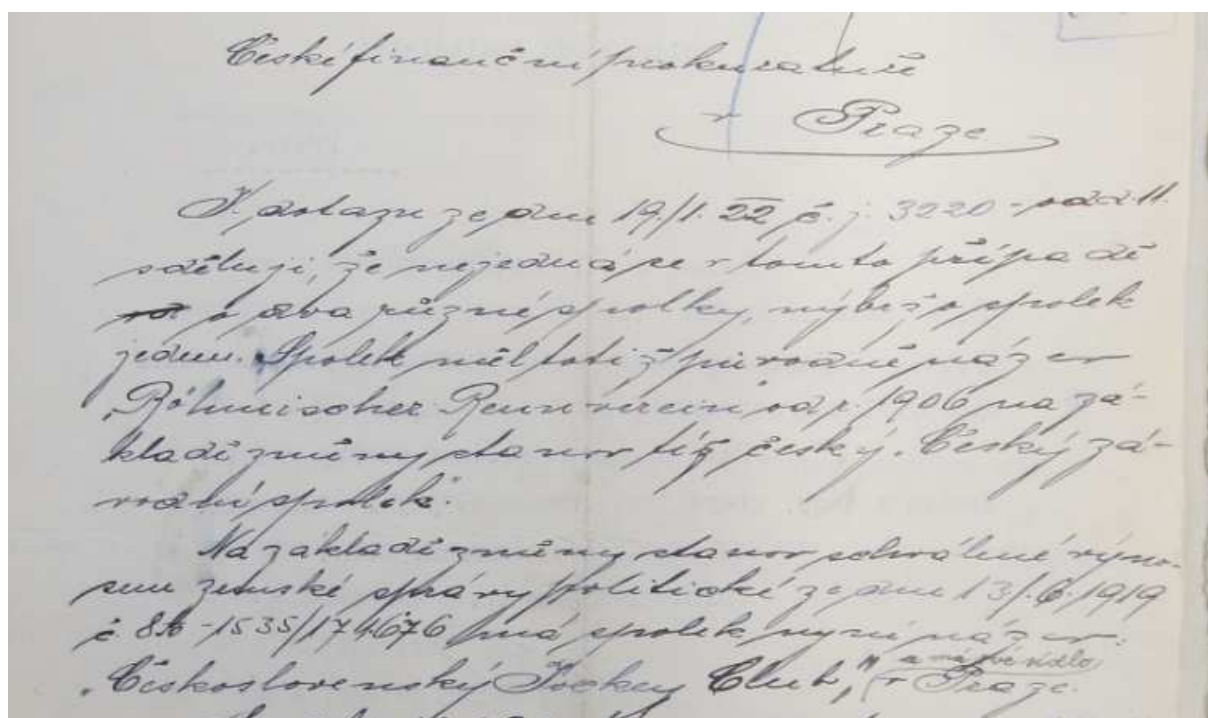 České finanční prokuratuře
v Praze.
K dotazu ze dne 19/1. 22 č. j. 3220 - odd. 11.
sděluji, že nejedná se v tomto případě
o dva různé spolky, nýbrž o spolek
jeden. Spolek měl totiž původně název
„Böhmischer Rennverein“, od r. 1906 na zá-
kladě změny stanov též český „Český zá-
vodní spolek“.
Na základě změny stanov schválené výno-
sem zemské správy politické ze dne 13/.6.1919
č 8 -1535/1 má spolek nyní název:
„Československý Jockey Club,“ a má své sídlo
v Praze.